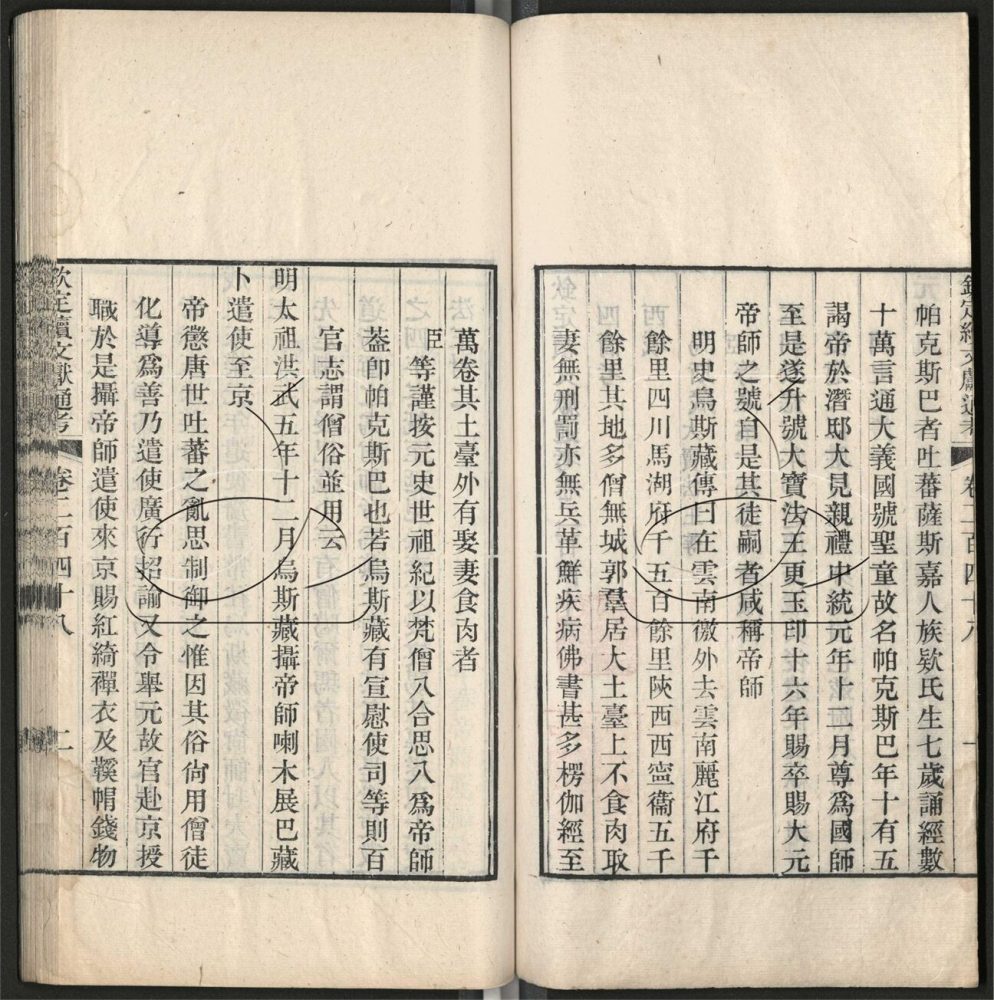 欽定續文獻通考
卷二百四十八
一
帕克斯巴者吐蕃薩斯嘉人族欵氏生七歲誦經數
十萬言通大義國號聖童故名帕克斯巴年十有五
謁帝於潛邸大見親禮中統元年十二月尊爲國師
至是遂升號大寶法王更玉印十六年賜卒賜大元
帝師之號自是其徒嗣者咸稱帝師
明史烏斯藏傳曰在雲南徼外去雲南麗江府千
餘里四川馬湖府千五百餘里陝西西寧衞五千
餘里其地多僧無城郭羣居大土臺上不食肉取
妻無刑罰亦無兵革鮮疾病佛書甚多楞伽經至
萬卷其土臺外有娶妻食肉者
臣等謹按元史世祖紀以梵僧八合思八爲帝師
葢卽帕克斯巴也若烏斯藏有宣慰使司等則百
官志謂僧俗並用云
明太祖洪武五年十二月烏斯藏攝帝師喇木展巴藏
卜遣使至京
帝懲唐世吐蕃之亂思制御之惟因其俗尙用僧徒
化導爲善乃遣使廣行招諭又令舉元故官赴京授
職於是攝帝師遣使來京賜紅綺禪衣及鞵帽錢物
欽定續文獻通考
卷二百四十八
二